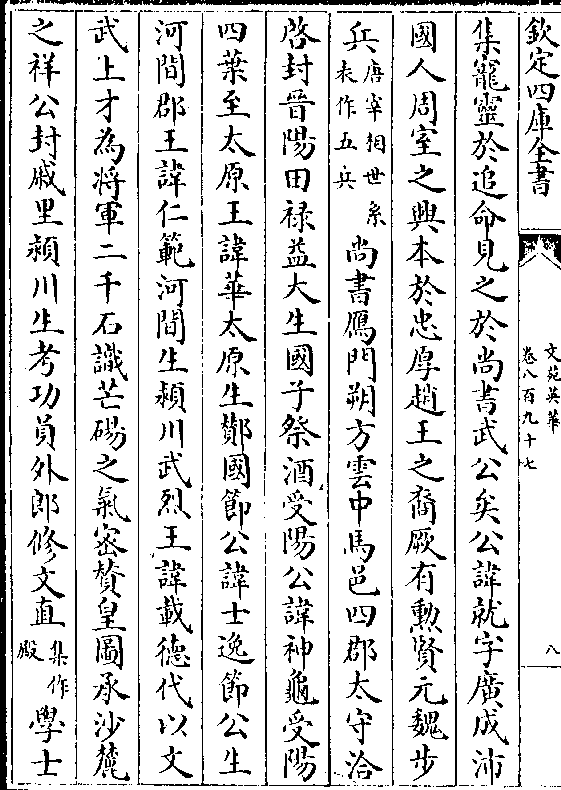 欽定四庫全書
文苑英華
卷八百九十七
八
集寵靈於追命見之於尚書武公矣公諱就字廣成沛
國人周室之興本於忠厚趙王之裔厥有勲賢元魏步
兵唐宰相世系表作五兵尚書鴈門朔方雲中馬邑四郡太守洽
啓封晉陽田禄益大生國子祭酒受陽公諱神龜受陽
四葉至太原王諱華太原生鄭國節公諱士逸節公生
河間郡王諱仁範河間生潁川武烈王諱載德代以文
武上才為將軍二千石識芒碭之氣密賛皇圖承沙麓
之祥公封戚里潁川生考功員外郎修文直集作殿學士